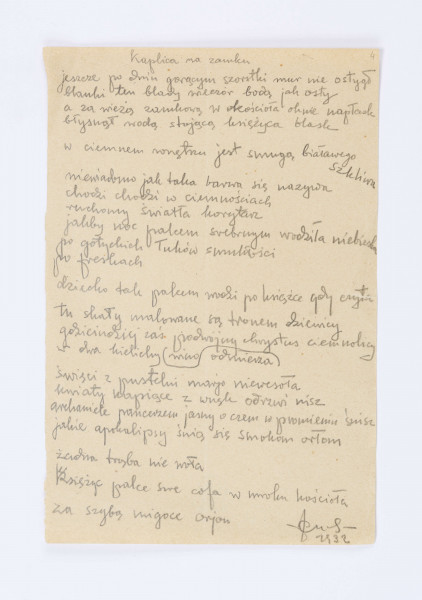 Kaplica na zamku
4
jeszcze po dniu gorącym szorstki mur nie ostygł
blanki ten blady wieczór bodą jak osty
a za wieżą zamkową w kościoła oknie
błysnął wodą stojącą księżyca blask
w ciemnem wnętrzu jest smuga białawego
szkliwa
niewiadomo jak taka barwa się nazywa
chodzi chodzi w ciemnościach
ruchomy światła korytarz
jakby noc palcem srebrnym wodziła niebieska
po gotyckich łuków smukłości
po freskach
dziecko tak palcem wodzi po książce gdy czyta
tu skały malowane są tronem dziewicy
gościnniej zaś podwójny chrystus ciemnolicy
w dwa kielichy wino odmierza
święci z pustelni mają niewesoła
kwiaty kapiące z wnęk odrzwi nisz
archaniele pancerzem jasny o czem w promieniu śnisz
jakie apokalipsy śnią się smokom orłom
żadna trąba nie woła
Książę palce swe cofa w mroku kościoła
za szybą migoce orjon
1932